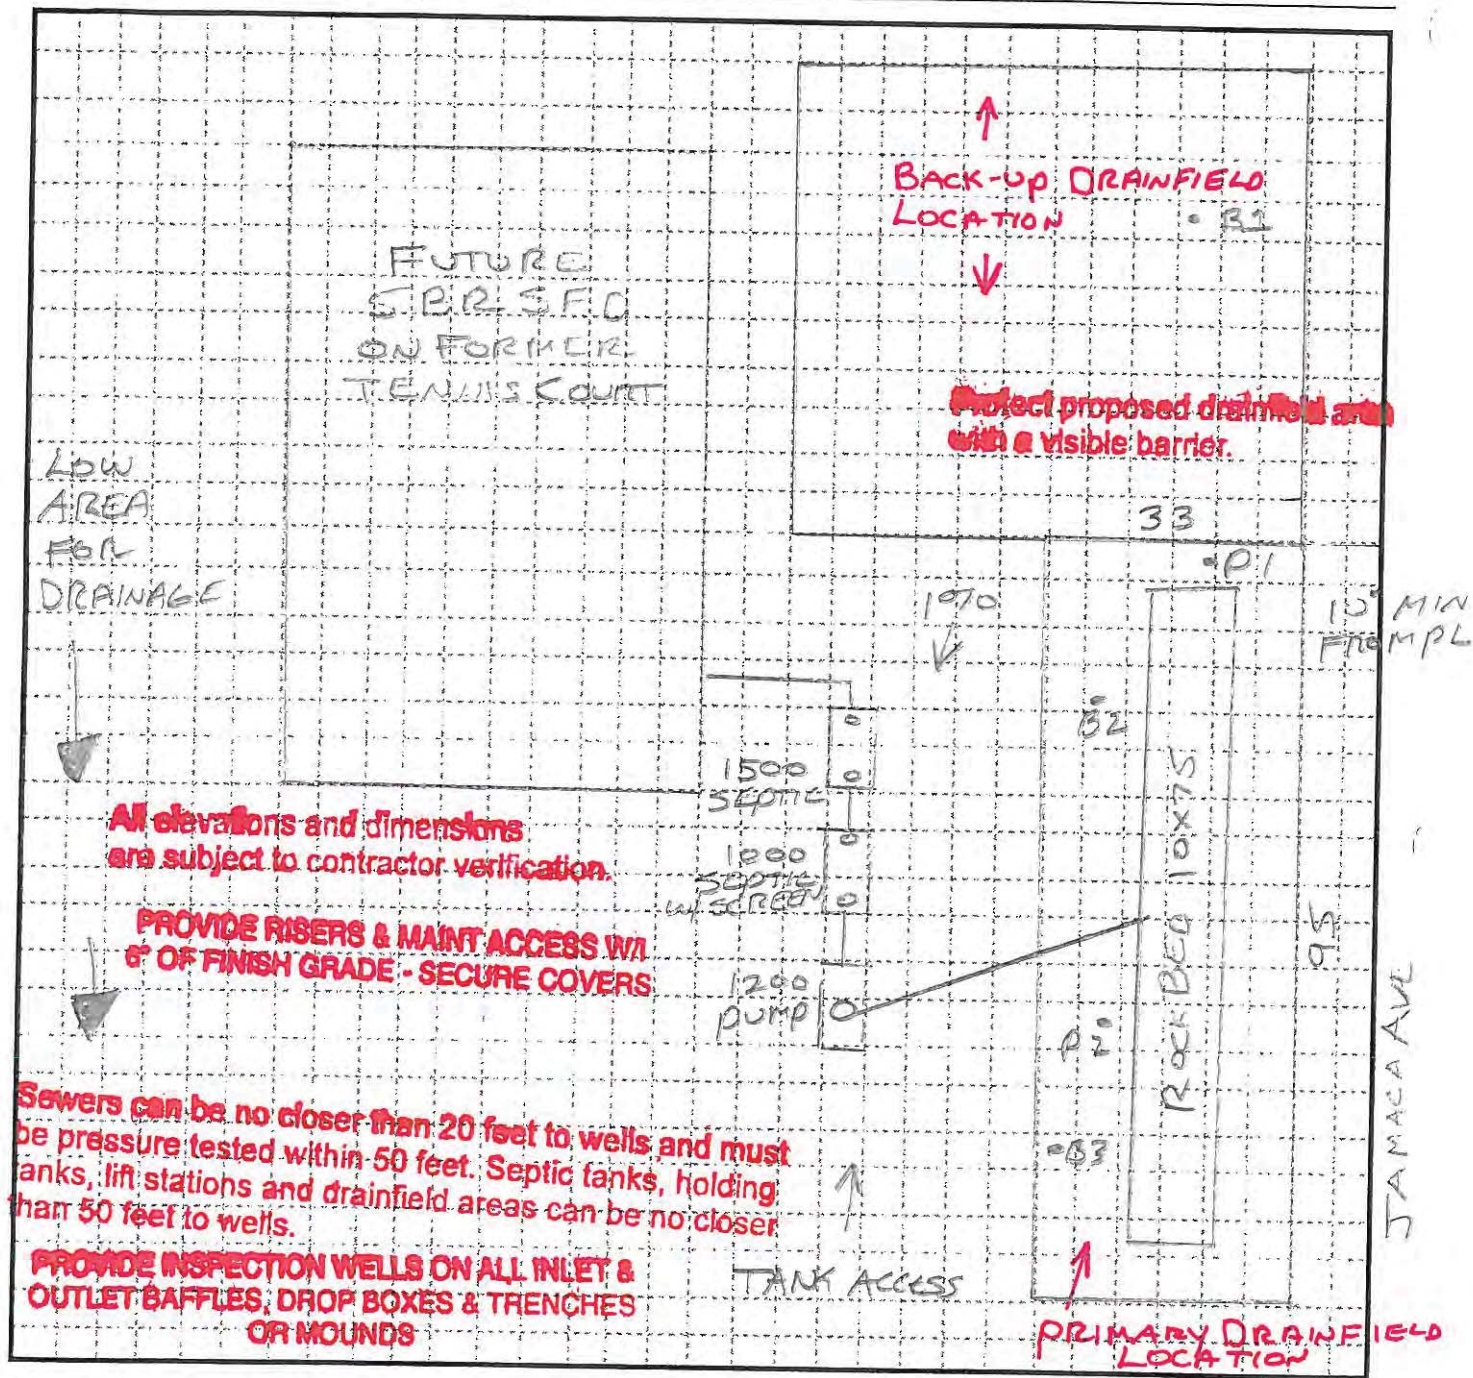 BACK-UP DRAINFIELD
LOCATION
• B1
FUTURE
ON FORMER
TENNIS COURT
Protect proposed drainfield area
with a visible barrier.
LOW
AREA
FOR
DRAINAGE
33
P1
1%
10' MIN
FROM PL
B2
1500
SEPTIC
1000
SEPTIC
W/ SCREEN
1200
PUMP
ROCK BED 10X75
95
JAMACA AVE
P2
B3
All elevations and dimensions
are subject to contractor verification.
PROVIDE RISERS & MAINT ACCESS W/I
6" OF FINISH GRADE - SECURE COVERS
Sewers can be no closer than 20 feet to wells and must
be pressure tested within 50 feet. Septic tanks, holding
tanks, lift stations and drainfield areas can be no closer
than 50 feet to wells.
PROVIDE INSPECTION WELLS ON ALL INLET &
OUTLET BAFFLES, DROP BOXES & TRENCHES
OR MOUNDS
TANK ACCESS
PRIMARY DRAINFIELD
LOCATION